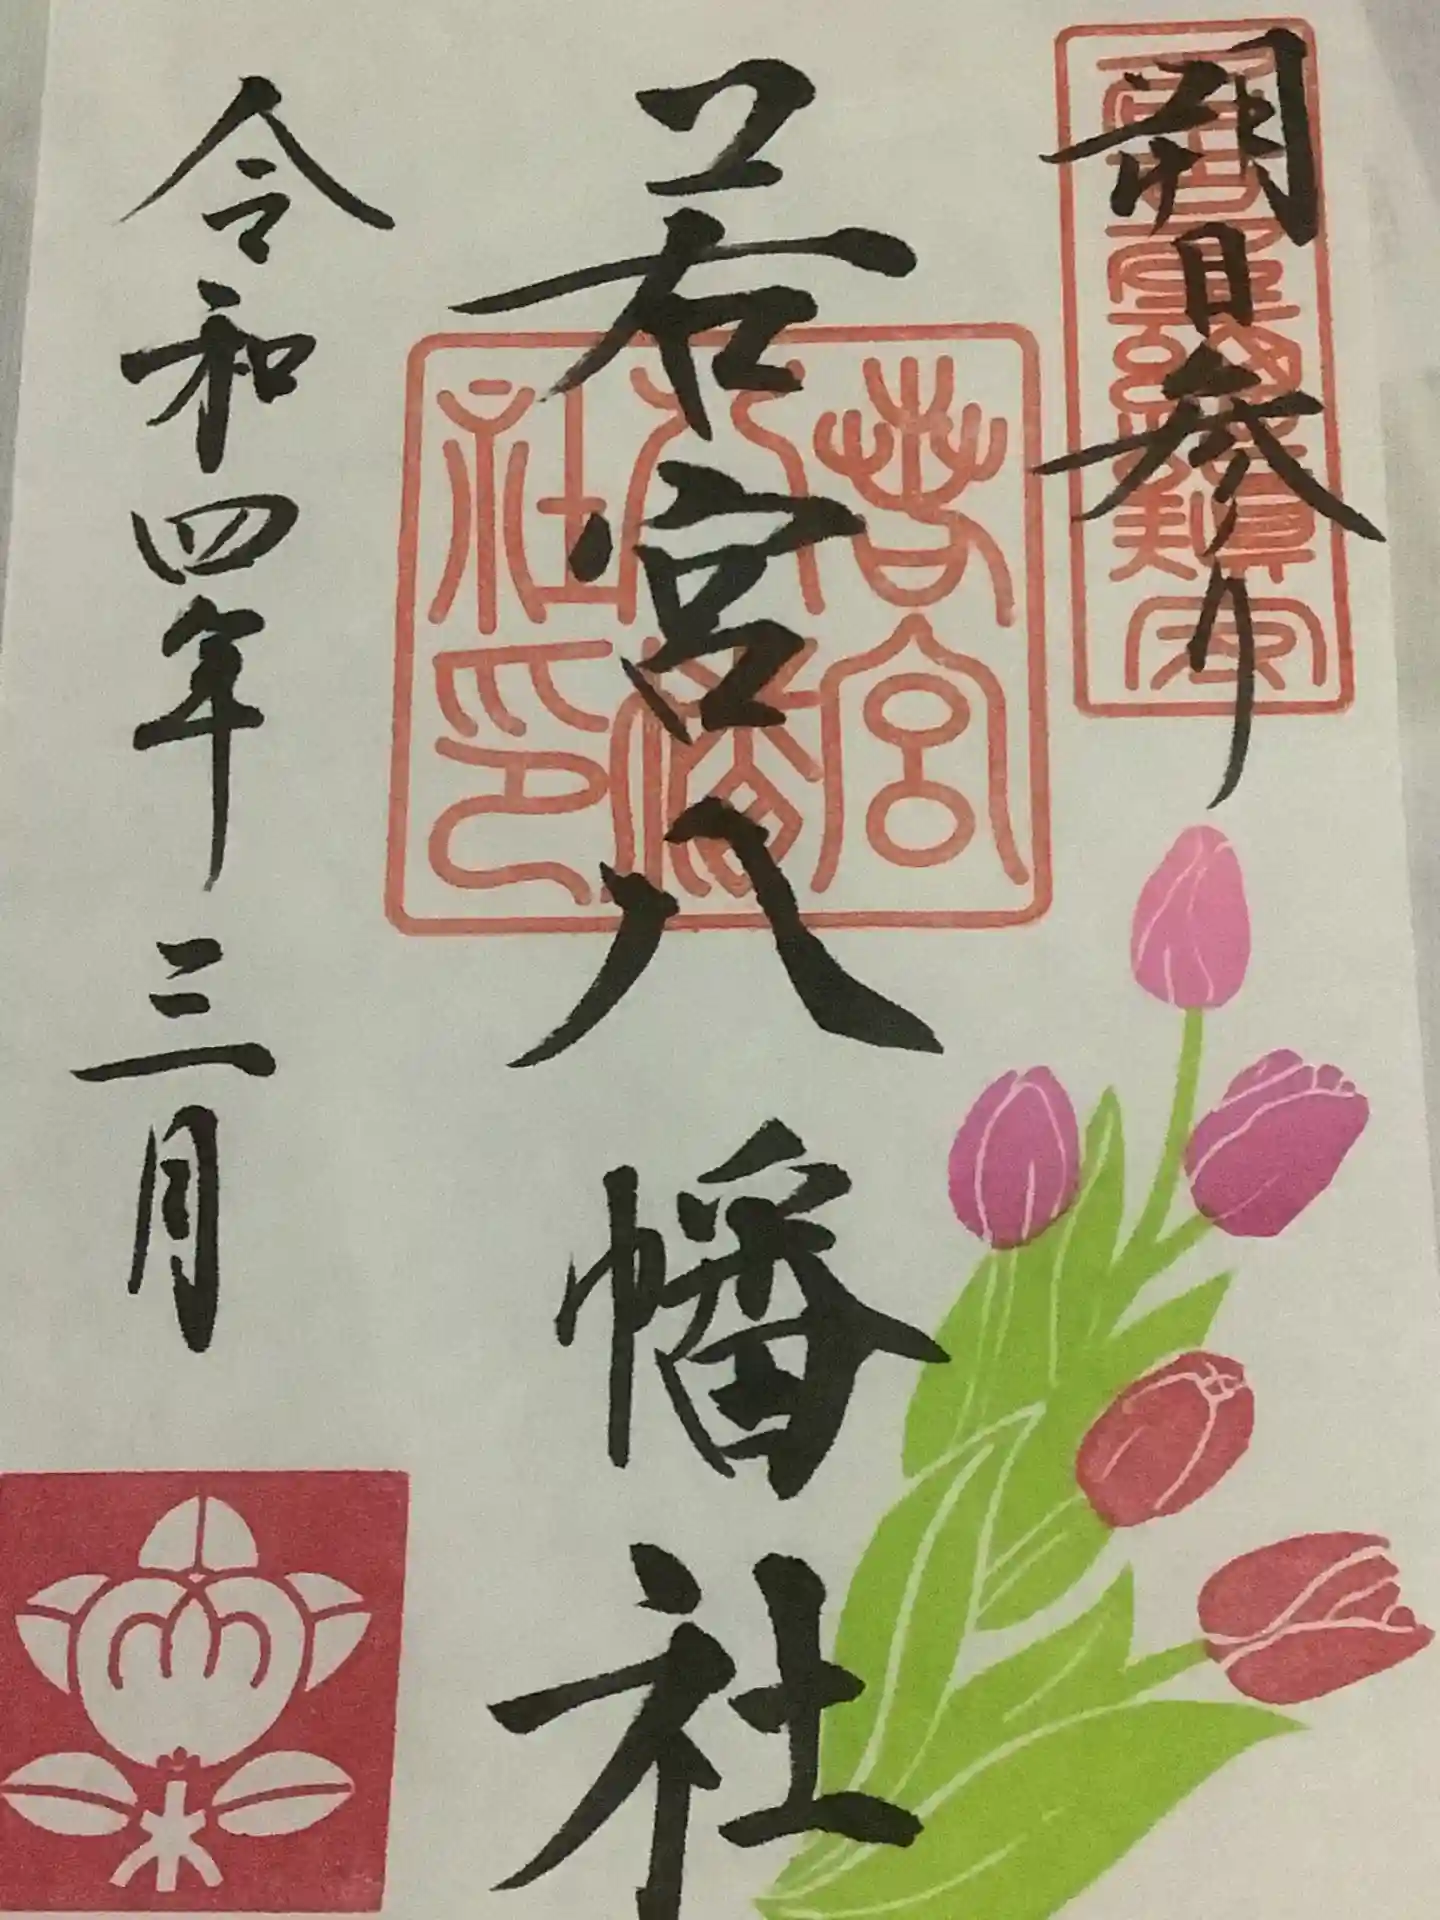 朔日参り
若宮八幡社
若宮
八幡
社印
令和四年三月